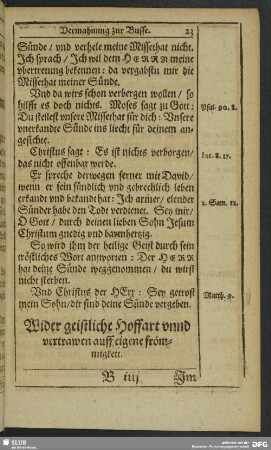 Vermahnung zur Busse. 23
Sünde / vnd verhele meine Missethat nicht.
Ich sprach / Ich wil dem HERRN meine
vbertretung bekennen: da vergabstu mir die
Missethat meiner Sünde.
Vnd da wirs schon verbergen wollen / so
hilfft es doch nichts. Moses sagt zu Gott:
Du stellest vnsere Missethat für dich: Vnsere
vnerkandte Sünde ins liecht für deinem an-
gesichte.
Psal. 90. 8.
Christus sagt: Es ist nichts verborgen /
das nicht offenbar werde.
Luc. 8. 17.
Er spreche derwegen ferner mit David /
wenn er sein sündlich vnd gebrechlich leben
erkand vnd bekandt hat: Ich armer / elender
Sünder habe den Todt verdienet. Sey mir /
O Gott / durch deinen lieben Sohn Jesum
Christum gnedig vnd barmhertzig.
2. Sam. 12.
So wird ihm der heilige Geist durch sein
tröstliches Wort antworten: Der HERR
hat deine Sünde weggenommen / du wirst
nicht sterben.
Vnd Christus der HErr: Sey getrost
mein Sohn / dir sind deine Sünde vergeben.
Matth. 9.
Wider geistliche Hoffart vnnd
vertrawen auff eigene fröm-
migkeit.
B iiij Im
SLUB